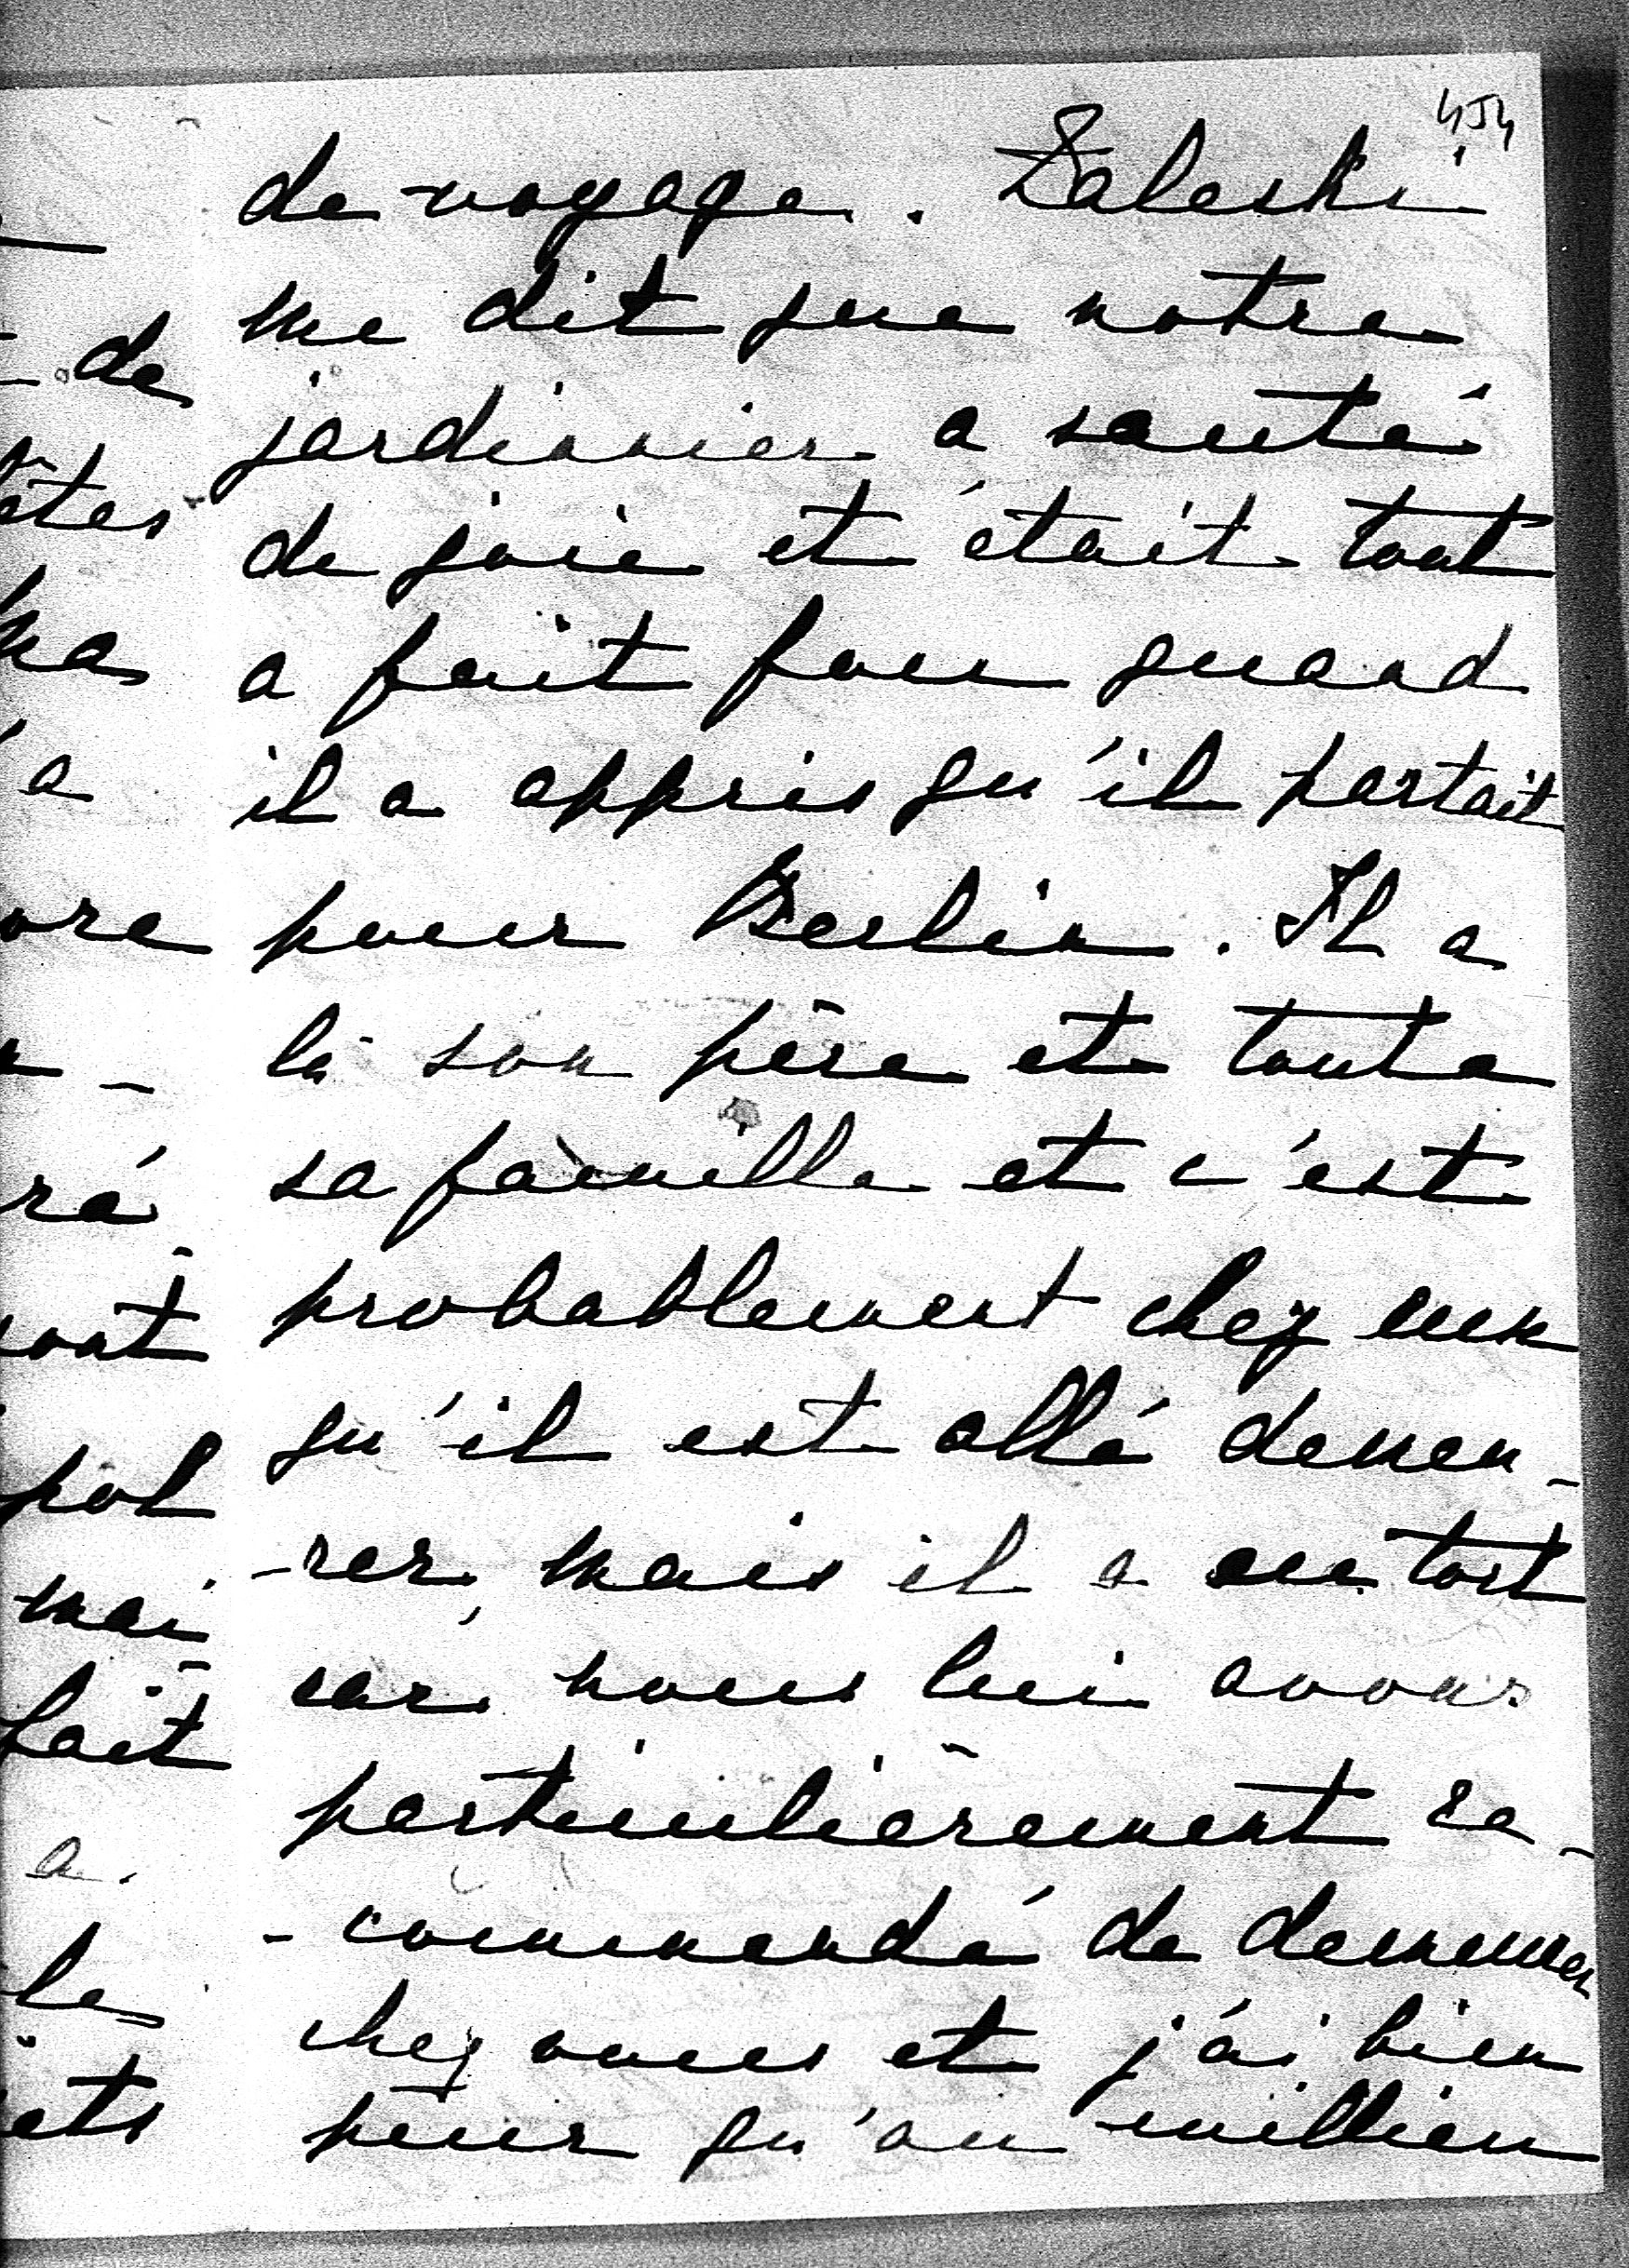 454
de voyage. Zaleski
me dit que notre
jardinier a sauté
de joie et était tout
a fait fou quand
il a appris qu'il partait
pour Berlin. Il a
là son père et toute
sa famille et c'est
probablement chez eux
qu'il est allé demeu-
-rer, mais il a eu tort
car nous lui avons
particulièrement re-
-commandé de demeurer
chez vous et j'ai bien
peur qu'au millieu
de
êtes
a
ré
pol
mai-
fait
a.
le